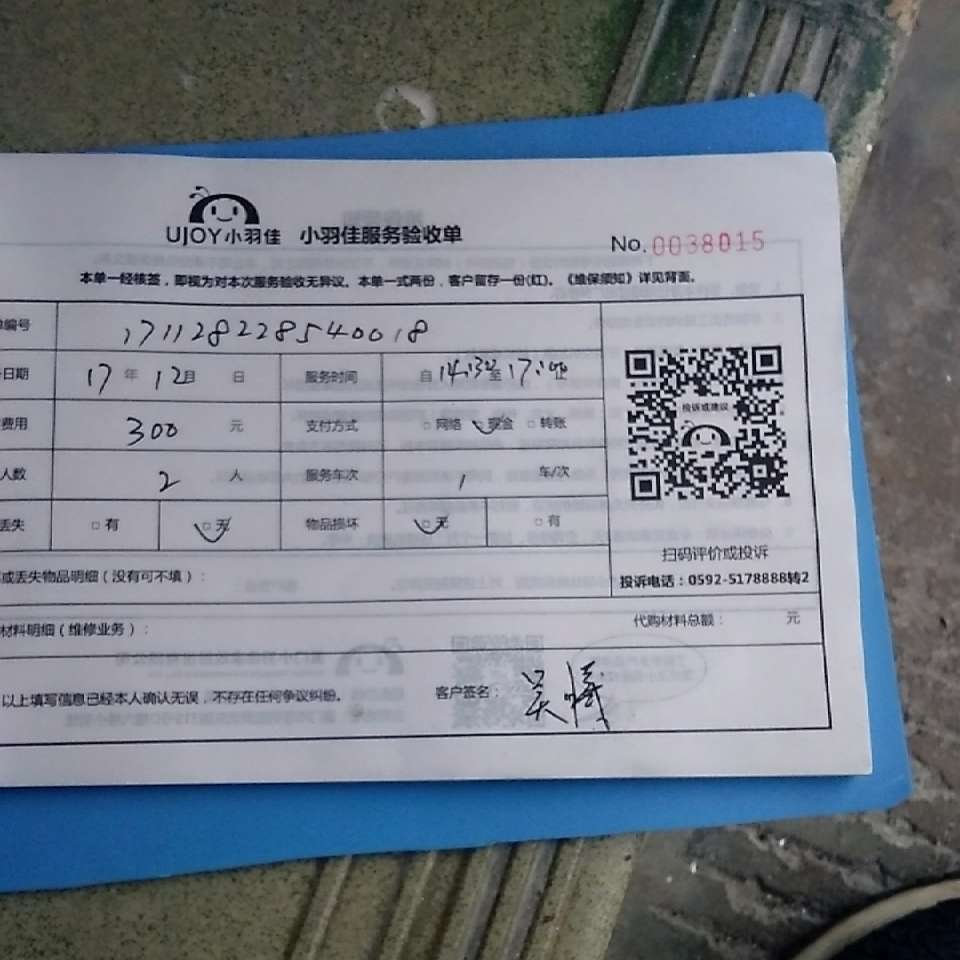 UJOY小羽佳 小羽佳服务验收单 No.0038015
本单一经核签，即视为对本次服务验收无异议。本单一式两份，客户留存一份(红)。《维保须知》详见背面。
单编号 171128228540018
日期 17年12月 日 服务时间 自14:32至17:
费用 300 元 支付方式 □网络 □现金 □转账
人数 2 人 服务车次 1 车/次
丢失 □有 □无 物品损坏 □无 □有
投诉或建议
扫码评价或投诉
投诉电话：0592-5178888转2
或丢失物品明细（没有可不填）：
材料明细（维修业务）： 代购材料总额： 元
以上填写信息已经本人确认无误，不存在任何争议纠纷。 客户签名： 吴